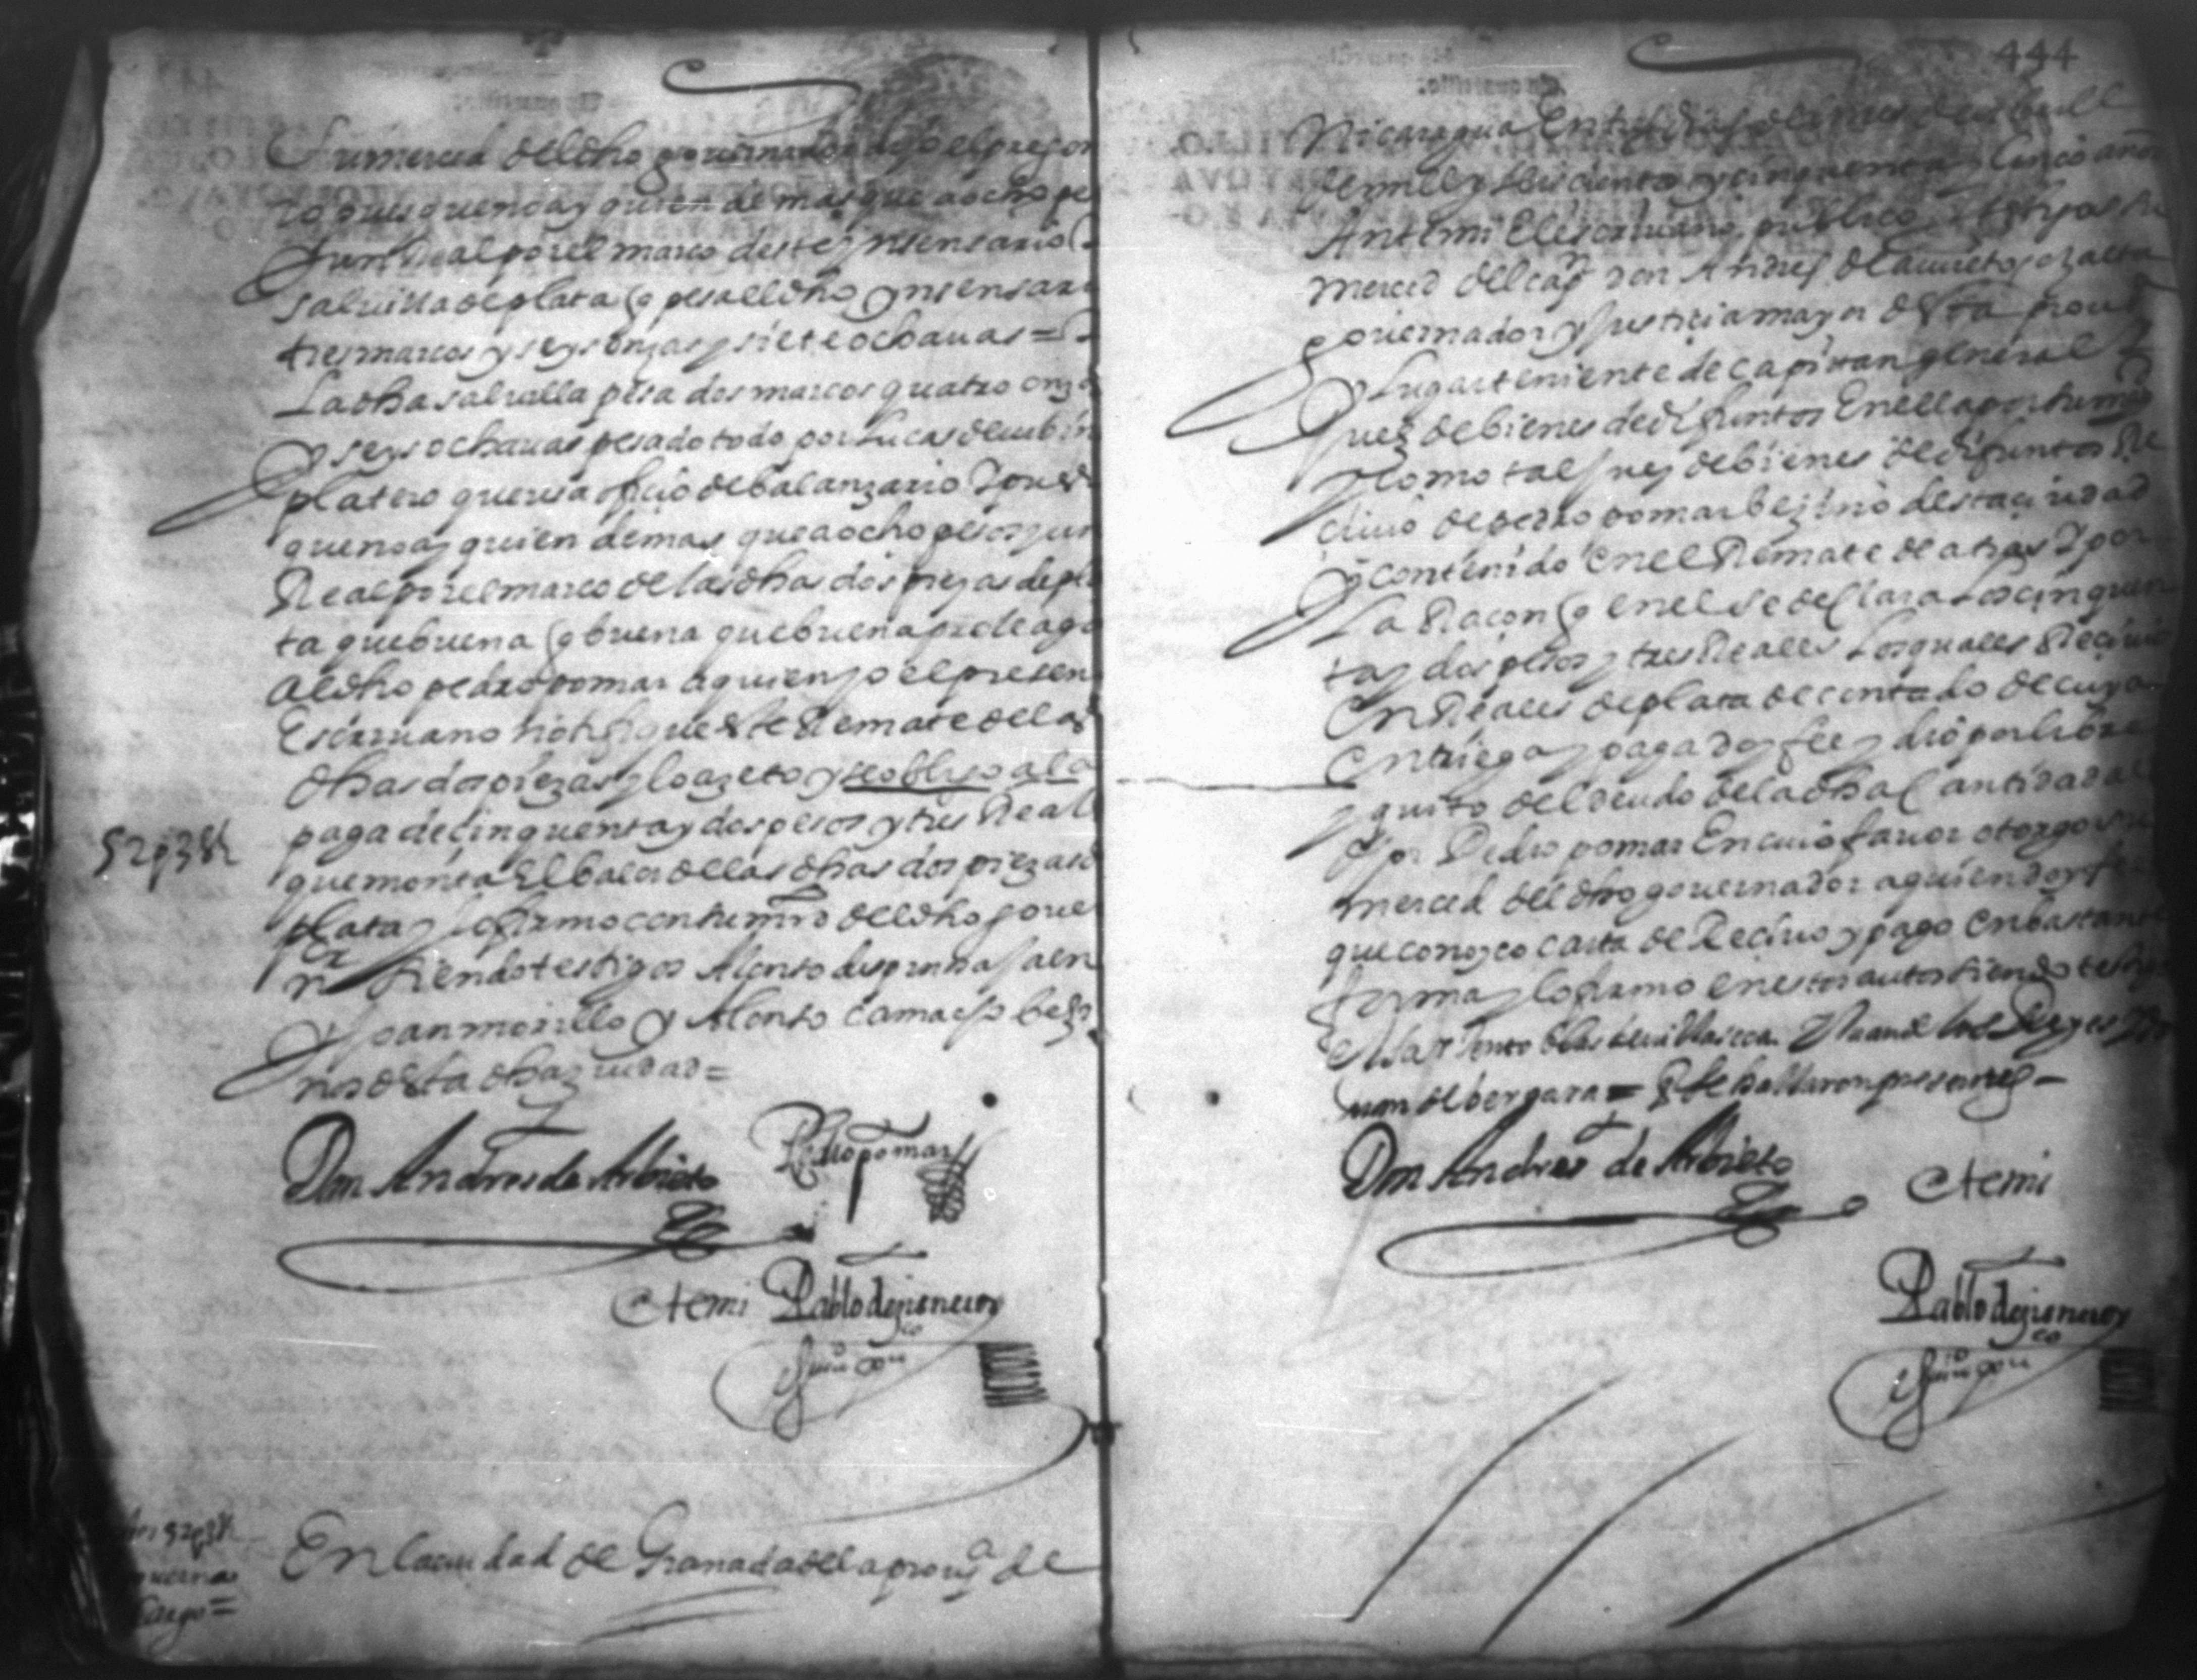 Su merced del dho governador dijo el pregon
ro pues que no ay quien de mas que a ocho pe
y un Real por el marco deste ynsensario
salvilla de plata q pesa el dho ynsensari
tres marcos y seys onzas y siete ochavas =
La dha salvilla pesa dos marcos quatro onza
y seys ochavas pesado todo por Lucas
platero que usa ofiçio de balanzario Y pues
que no ay quien de mas que a ocho pesos y un
Real por el marco de las dhas dos piezas de pla
ta que buena q buena que buena pro le aga
al dho pedro pomar a quien yo el presen
Escrivano notifique este Remate de las
dhas dos piezas y lo azeto y se obligo a la
52 p 3 R
paga de çinquenta y dos pesos y tres Reale
que monta El balor de las dhas dos piezas d
plata y lo firmo con su md del dho gover
or siendo testigos Alonso
y Joan morillo y Alonso camacho bezi
nos desta dha ziudad =
Don Andres de Arbieto
Pedro pomar
Ate mi Pablo de
En la ciudad de Granada de la prouia de
52 p 3 R
cargo =
444
Nicaragua En tres dias del mes de
de mil y seisçientos y çinquenta y Cinco años
Ante mi El escrivano publico y testigos Su
merced del cap don Andres de arvieto
governador y Justiçia mayor desta prouia
y lugarteniente de capitan general
Juez de bienes de difuntos En ella por su magd
y Como tal Juez de bienes de difuntos Re
çivio de pedro pomar bezino desta ciudad
y contenido en el Remate de atras Y por
La Racon q en el se declara Los çinquen
ta y dos pesos y tres Reales Los quales Reçivio
en Reales de plata de contado de cuya
entriega y paga doy fee y dio por libre
y quito del deudo de la dha Cantidad al
dho Pedro pomar En cuio favor otorgo su
merced del dho governador a quien doy fe
que conozco carta de Recivo y pago en bastante
forma y lo firmo en estos autos siendo testigos
de bergara = q se hallaron presentes –
Don Andres de Arbieto
Ate mi
Pablo de